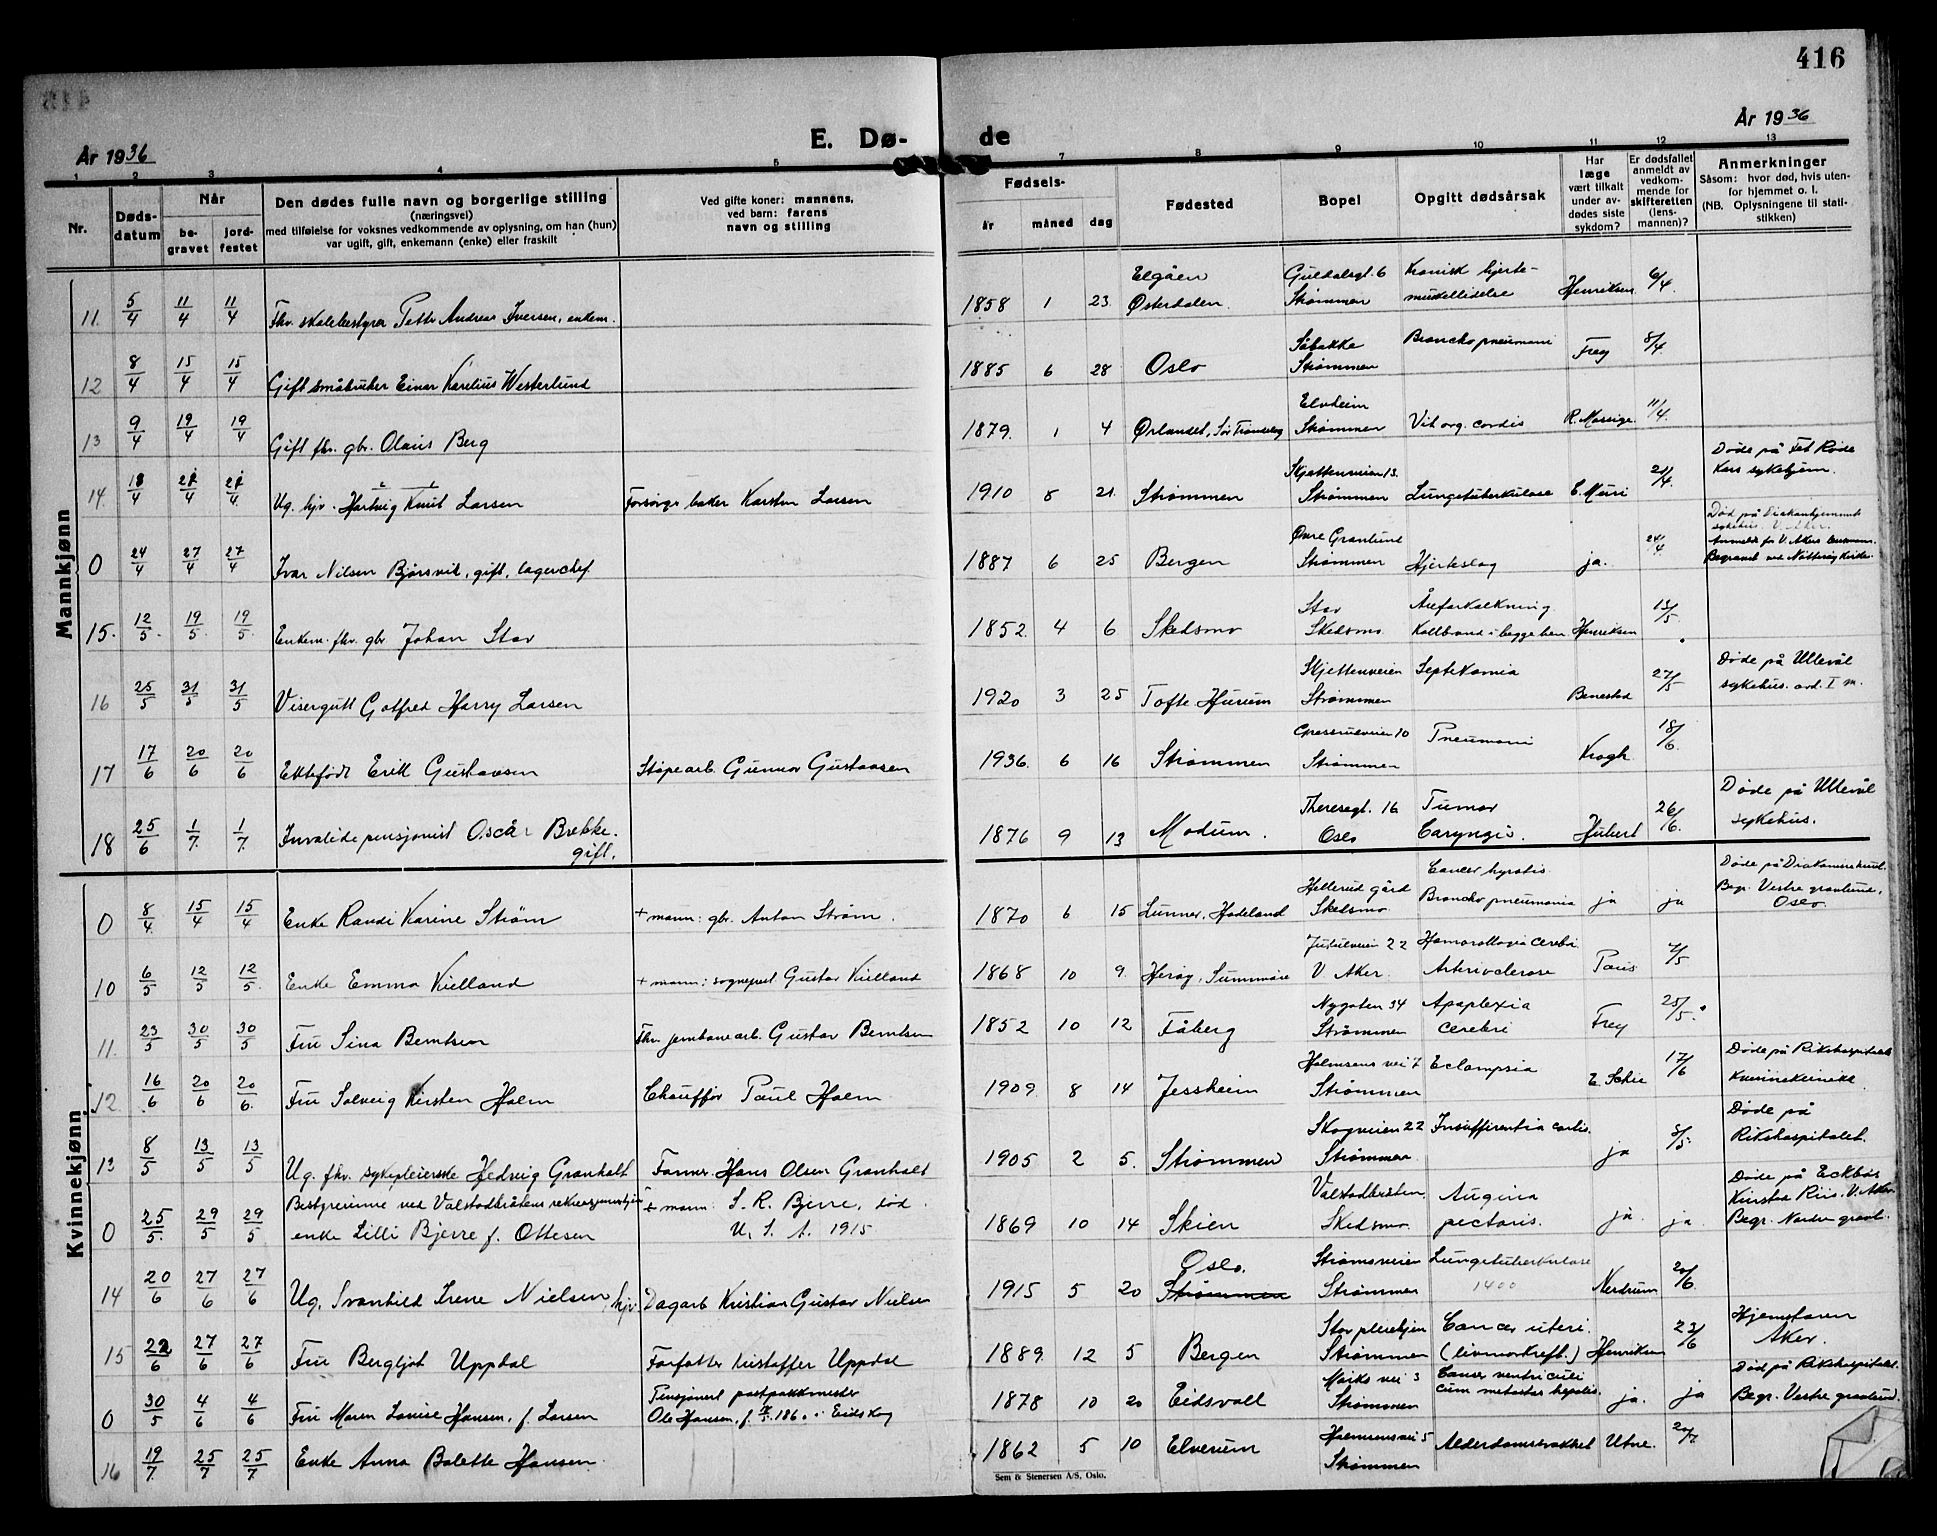 416
År 1936
E. Dø-
de
År 1936
1 2 3 4 5 7 8 9 10 11 12 13
Nr.
Døds-
datum
Når
be-
gravet
jord-
festet
Den dødes fulle navn og borgerlige stilling
(næringsvei)
med tilføielse for voksnes vedkommende av oplysning, om han (hun)
var ugift, gift, enkemann (enke) eller fraskilt
Ved gifte koner: mannens,
ved barn: farens
navn og stilling
Fødsels-
år måned dag
Fødested
Bopel
Opgitt dødsårsak
Har
læge
vært tilkalt
under av-
dødes siste
sykdom?
Er dødsfallet
anmeldt av
vedkom-
mende for
skifteretten
(lens-
mannen)?
Anmerkninger
Såsom: hvor død, hvis uten-
for hjemmet o. l.
(NB. Oplysningene til stati-
stikken)
Mannkjønn
11. 5/4 11/4 11/4 Fhv. skolebestyrer Petter Andreas Iversen, enkem. 1858 1 23 Elgåen Østerdalen Guldalsgt. 6 Strømmen Kronisk hjerte- muskellidelse Henriksen 6/4
12 8/4 15/4 15/4 Gift småbruker Einar Karelius Westerlund 1885 6 28 Oslo Såbakke Strømmen Bronchopneumoni Frey 8/4
13 9/4 19/4 19/4 Gift fhv. gbr. Olaus Berg 1879. 1 4 Ørlandet, Sør Trøndelag Elvheim Strømmen Vit. org. cordis 11/4
14. 18/4 Ug. hjv. Hartvig Knut Larsen Forsørge baker Karsten Larsen 1910 8 21. Strømmen Skjettenveien 13. Strømmen Lungetuberkulose E. Muri 21/4. Døde på Fet Røde Kors sykehjem.
0 24/4 27/4 27/4 Ivar Nilsen Bjørsvik, gift, lagerchef 1887 6 25 Bergen Øvre Granlund Strømmen Hjerteslag ja. 24/4 Død på Diakonhjemmets sykehus. V. Aker. Anmeldt for V. Akers lensmann. Begravet ved Nøtterøy kirke.
15. 12/5 19/5 19/5 Enkem. fhv. gbr Johan Stav 1852. 4 6 Skedsmo Stav Skedsmo Åreforkalkning Koldbrand i begge ben Henriksen 13/5
16 25/5 31/5 31/5 Visergutt Gotfred Harry Larsen 1920 3 25 Tofte Hurum Skjettenveien Strømmen Septikæmia Benestad 27/5 Døde på Ullevål sykehus. avd. I m.
17 17/6 20/6 20/6 Ektefødt Erik Gustavsen Støpearb. Gunnar Gustavsen 1936. 6 16 Strømmen 10 Strømmen Pneumoni Krogh 18/6.
18 25/6 1/7. 1/7. Invalidepensjonist Oscar Brekke. gift. 1876 9 13 Modum. Theresegt. 16 Oslo Tumor Laryngis. Hubert 26/6. Døde på Ullevål sykehus.
Kvinnekjønn
0 8/4. 15/4 15/4 Enke Randi Karine Strøm + mann: gbr. Anton Strøm. 1870 6 15 Lunner, Hadeland Hellerud gård Skedsmo Cancer hepatis Bronchopneumonia ja ja Døde på Diakonissehuset. Begr. Vestre gravlund, Oslo.
10 6/5 12/5 12/5. Enke Emma Kielland + mann: sogneprest Gustav Kielland 1868 10 9. Herøy, Sunnmøre 22 V Aker. Hæmorrhagia cerebri Arteriosclerose Paus 7/5
11. 23/5 30/5 30/5 Fru Sina Berntsen Fhv. jernbanearb. Gustav Berntsen 1852 10 12 Fåberg Nygaten 34 Strømmen Apoplexia cerebri Frey 25/5.
12. 16/6 20/6 20/6. Fru Solveig Kirsten Holm Chauffør Paul Holm 1909. 8 14 Jessheim Holmsens vei 7 Strømmen Eclampsia E. Schie 17/6 Døde på Rikshospitalets kvinneklinikk.
13 8/5 13/5 13/5 Ug. fhv. sykepleierske Hedvig Granholt Farmer. Hans Olsen Granholt 1905 2 5. Strømmen Skogveien 22 Strømmen. Insufficientia cordis. ja 8/5. Døde på Rikshospitalet.
0 25/5. 29/5 29/5 Bestyrerinne ved Valstadbråtens rekreasjonshjem enke Lilli Bjerre f. Ottesen + mann: S. R. Bjerre, død. U. S. A. 1915 1869 10 14 Skien Valstadbråten Skedsmo. Angina pectoris. ja. ja Døde på Eckbos V. Aker Begr. Nordre gravl.
14 20/6 27/6 27/6 Ug. Svanhild Irene Nielsen, hjv. Dagarb Kristian Gustav Nielsen 1915 5 20 Oslo. Strømmen Strømsveien Strømmen Lungetuberkulose 1400 Nerdrum 20/6.
15 22/6 27/6 27/6 Fru Bergljot Uppdal Forfatter Kristoffer Uppdal 1889. 12 5 Bergen Stav pleiehjem Strømmen Cancer uteri. (livmorkreft.) Henriksen 23/6 Hjemstavn Aker.
0 30/5 4/6 4/6 Fru Maren Louise Hansen, f. Larsen Pensjonert postpakkmester Ole Hansen, f. 186. i Eidskog 1878 10 20 Eidsvoll vei 3 Strømmen Cancer ventriculi cum metastas hepatis. ja. ja Død på Rikshospitalet. Begr. Vestre gravlund.
16 19/7. 25/7 25/7 Enke Anna Bolette Hansen. 1862 5 10 Elverum Holmsensvei 5 Strømmen Alderdomssvakhet Utne. 20/7
Sem & Stenersen A/S, Oslo.